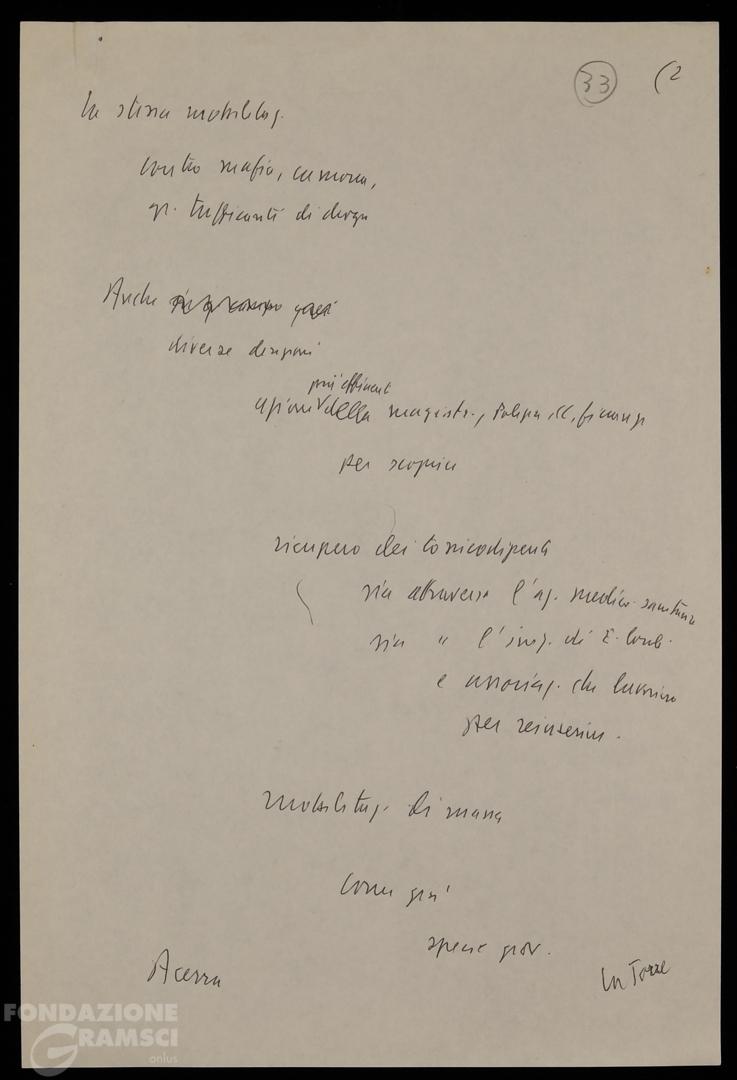 33 (2
La stessa mobilitaz.
contro mafia, camorra,
gr. trafficanti di droga
Anche
diverse decisioni
più efficient
azioni della magistr., Polizia, CC, finanza
per scoprire
ricupero dei tossicodipenti
sia attraverso l'az. medico-sanitaria
sia " l' di E. loc.
e associaz. che lavorino
per reinserim.
mobilitaz. di massa
come già
specie giov.
Acerra
La Torre
FONDAZIONE
GRAMSCI
onlus